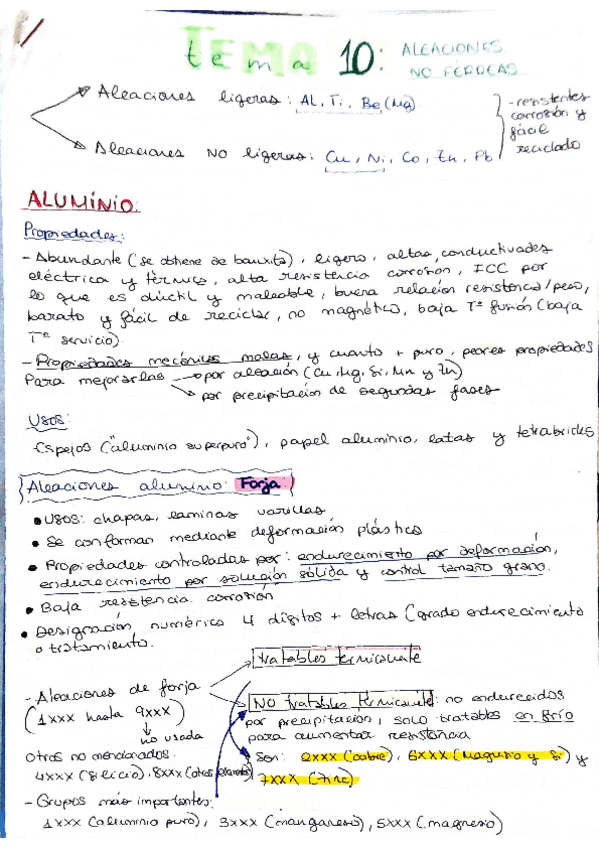 tema 10: ALEACIONES
NO FÉRREAS
Aleaciones ligeras: AL, Ti, Be (Mg)
- resistentes
corrosión y
fácil
reciclado
Aleaciones NO ligeras: Cu, Ni, Co, Zn, Pb
ALUMINIO:
Propiedades:
- Abundante (se obtiene de bauxita), ligero, altas conductividades
eléctrica y térmica, alta resistencia corrosión, FCC por
lo que es dúctil y maleable, buena relación resistencia/peso,
barato y fácil de reciclar, no magnético, baja Tª fusión (baja
Tª servicio)
- Propiedades mecánicas malas, y cuanto + puro, peores propiedades
Para mejorarlas → por aleación (Cu, Mg, Si, Mn y Zn)
→ por precipitación de segundas fases
Usos:
Espejos ("aluminio superpuro"), papel aluminio, latas y tetrabricks
Aleaciones aluminio: Forja
• Usos: chapas, laminas varillas
• Se conforman mediante deformación plástica
• Propiedades controladas por: endurecimiento por deformación,
endurecimiento por solución sólida y control tamaño grano.
• Baja resistencia corrosión
• Designación numérica 4 dígitos + letras (grado endurecimiento
o tratamiento.
tratables termicamente
- Aleaciones de forja
(1xxx hasta 9xxx)
↓
no usada
NO tratables termicamente: no endurecidos
por precipitación, solo tratables en frío
para aumentar resistencia
Otros no mencionados.
4xxx (silicio), 8xxx (otros elementos)
Son: 2xxx (cobre), 6xxx (magnesio y Si) y
7xxx (zinc)
- Grupos más importantes:
1xxx (aluminio puro), 3xxx (manganeso), 5xxx (magnesio)